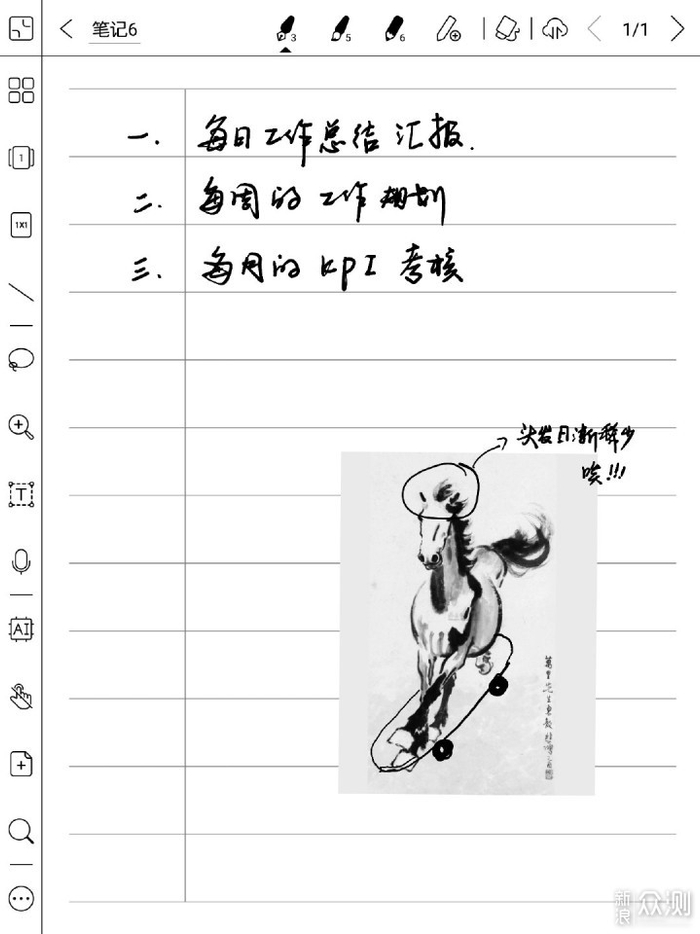 笔记6
3
5
6
1/1
1
1X1
T
AI
一. 每日工作总结汇报.
二. 每周的工作规划
三. 每月的KPI考核
头发日渐稀少
唉!!!
新浪
众测